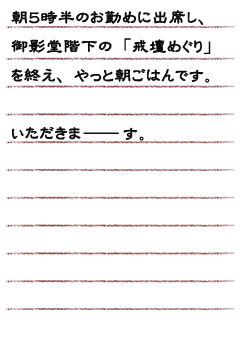 朝5時半のお勤めに出席し、
御影堂階下の「戒壇めぐり」
を終え、やっと朝ごはんです。
いただきま――す。